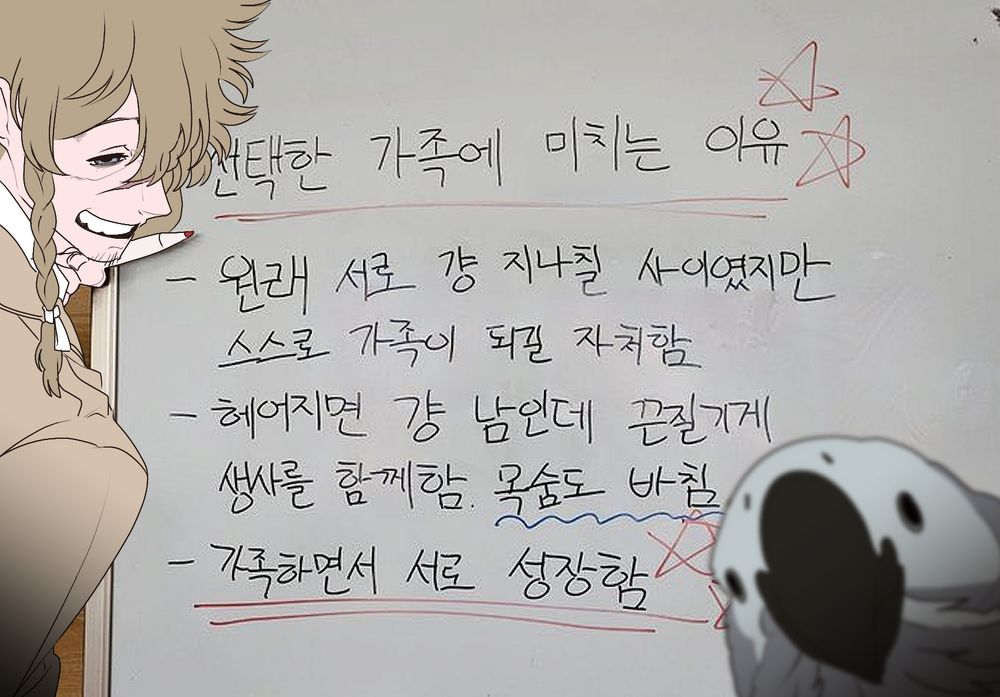 선택한 가족에 미치는 이유
- 원래 서로 걍 지나칠 사이였지만
스스로 가족이 되길 자처함
- 헤어지면 걍 남인데 끈질기게
생사를 함께함. 목숨도 바침
- 가족하면서 서로 성장함